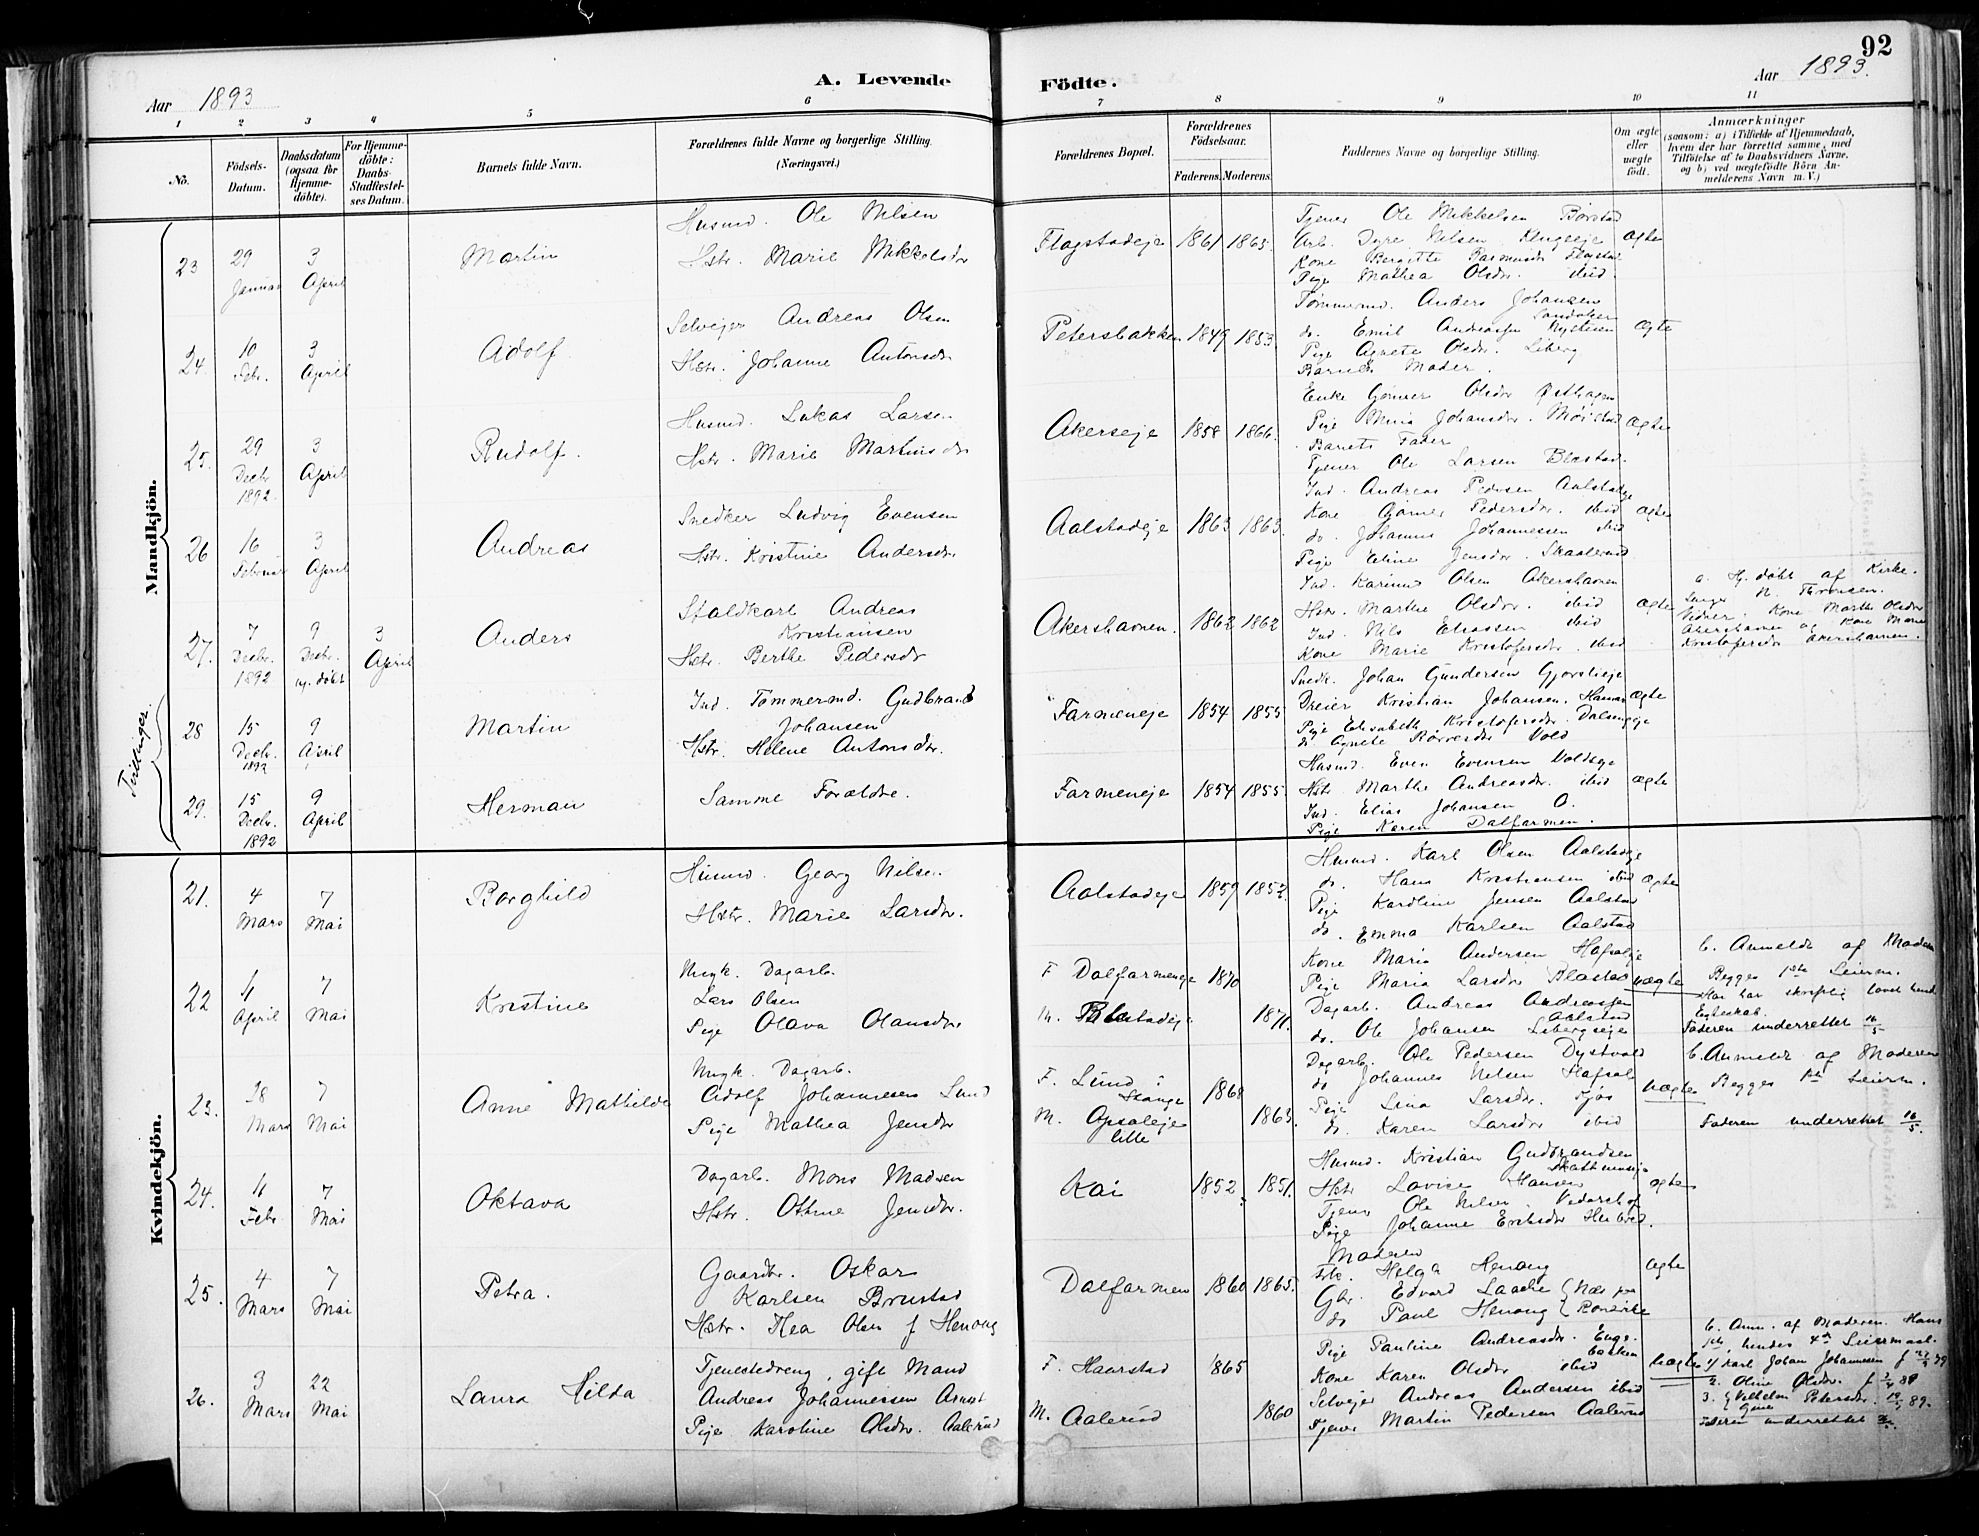 92
A. Levende Födte.
Aar 1893
Aar 1893.
1 2 3 4 5 6 7 8 9 10 11
No.
Födsels-Datum.
Daabsdatum (ogsaa for Hjemme-döbte).
For Hjemme-döbte: Daabs-Stadfæstel-ses Datum.
Barnets fulde Navn.
Forældrenes fulde Navne og borgerlige Stilling. (Næringsvei.)
Forældrenes Bopæl.
Forældrenes Födselsaar.
Faderens. Moderens.
Faddernes Navne og borgerlige Stilling.
Om ægte eller uægte födt.
Anmærkninger
(saasom: a) i Tilfælde af Hjemmedaab, hvem der har forrettet samme, med Tilföielse af to Daabsvidners Navne, og b) ved uægtefödte Börn An-melderens Navn m. V.)
Mandkjön.
23
29 Januar
3 April
Martin
Husmd. Ole Nilsen
Hstr. Marie Mikkelsdr
Flagstadeje
1861 1865.
Tjener Ole Mikkelsen Børstad
Arb. Syver Nilsen
Kone Bergitte Rasmusdr Flagstad
Pige Mathea Olsdr. ibid.
Ægte
24.
10 Febr.
3 April
Adolf
Selvejer Andreas Olsen
Hstr. Johanne Antonsdr
Petersbakken
1849 1853.
Tømmermd. Anders Johansen
do. Emil Andreassen
Pige Agnete Olsdr. Liberg
Barnets Moder.
Ægte
25.
29 Decbr 1892
3 April
Rudolf.
Husmd. Lukas Larsen
Hstr. Marie Martinsdr
Akerseje
1858 1866.
Enke Gunner Olsdr
Pige Maria Johansdr.
Barnets Fader
Tjener Ole Larsen Blæstad.
Ægte
26
16 Februar
3 April
Andreas
Snedker Ludvig Evensen
Hstr. Kristine Andersdr
Aalstadeje
1863 1863.
Ind. Andreas Pedersen Aalstadeje
Kone Pedersdr. ibid
do. Johannes Johannessen ibid
Pige Eline Jensdr. Skaalerud
Ægte
27.
7 Decbr. 1892
9 Decbr. hj. døbt
3 April
Anders
Staldkarl Andreas
Kristiansen
Hstr. Berthe Pedersdr
Akershavnen.
1862 1862
Ind. Karinus Olsen Akershavnen
Hstr. Marthe Olsdr. ibid
Ind. Nils Eliassen ibid
Kone Marie Kristofersdr. ibid
Ægte
a. Hj. døbt af Kirke-
sanger N. Thronsen.
Vidner: Kone Marthe Olsdr
Akershavnen og Kone Marie
Kristofersdr Akershavnen.
Tvillinger.
28
15 Decbr. 1892
9 April
Martin
Ind. Tømmermd. Gudbrand
Johansen
Hstr. Helene Antonsdr.
Farmeneje
1854 1855
Snedk. Johan Gundersen Gjørslieje
Dreier Kristian Johansen, Hamar
Pige Elisabeth Kristofersdr. Dalseneje
do Agnete Vold
Ægte
29.
15 Decbr. 1892
9 April
Herman
Samme Forældre.
Farmeneje
1854 1855.
Husmd. Even Evensen Voldeje
Hstr. Marthe Andreasdr. ibid
Ind. Elias Johansen O.
Pige Karen Dalfarmen.
Ægte
Kvindekjön.
21.
4 Mars
7 Mai
Borghild
Husmd. Georg Nilsen
Hstr. Marie Larsdr.
Aalstadeje
1859 1852.
Husmd. Karl Olsen Aalstadeje
do. Hans Kristiansen ibid
Pige Karoline Jensen Aalstad
do. Emma Karlsen Aalstad
Ægte
22
4 April
7 Mai
Kristine
Ungk. Dagarb.
Lars Olsen
Pige Olava Olausdr
F Dalfarmenge
M. Blæstadeje
1870
1871.
Kone Marie Andersen Hafsaleje
Pige Maria Larsdr Blæstad
Dagarb. Andreas Andreassen
Aalstad
do. Ole Johansen Libergseje
uægte
b. Anmeldt af Moderen
Begges 1ste Leierm.
Han har skriftlig lovet hende
Egteskab.
Faderen underrettet 16/5
23.
28 Mars
7 Mai
Anne Mathilde
Ungk. Dagarb.
Adolf Johannesen Lund
Pige Mathea Jensdr
F. Lund i
Stange
M. Opsaleje
lille
1868
1863.
Dagarb. Ole Pedersen Dystvold
do Johannes Nilsen Hafsal
Pige Lina Larsdr.
do. Karen Larsdr ibid
uægte
b. Anmeldt af Moderen
Begges 1ste Leierm.
Faderen underrettet 16/5.
24.
11 Febr
7 Mai
Oktava
Dagarb. Mons Madsen
Hstr. Othine Jensdr.
Kai
1852. 1851.
Husmd. Kristian Gudbrandsen
Hstr Lovise Hansen
Tjener Ole Nilsen
Pige Johanne Eriksdr
ægte
25.
4 Mars
7 Mai
Petra.
Gaardbr. Oskar
Karlsen Brustad
Hstr. Thea Olsen f Henong
Dalfarmen
1860 1865.
Moderen
Frk. Helga Henong
Gbr. Edvard Laache } Næs paa
do Paul Henong } Romerike
ægte
26.
3 Mars
22 Mai
Laura Hilda
Tjenestedreng, gift Mand
Andreas Johannessen
Pige Karoline Olsdr. Aalerud
F. Haarstad
M. Aalerud
1865
1860
Pige Pauline Andreasdr. Enge-
bakken
Kone Karen Olsdr ibid
Selvejer Andreas Andersen ibid
Tjener Martin Pedersen Aalerud
Uægte
b. Anm. af Moderen. Hans
1ste, hendes 4de Leiermaal.
1/ Karl Johan Johannesen
2. Oline Olsdr.
3. Vilhelm Petersdr.
Faderen underrettet